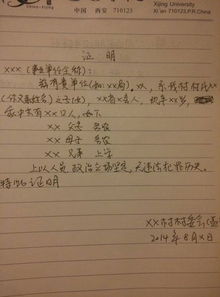 中国 西安 710123
Xijing University
Xi'an 710123/P.R.China
证 明
XXX(单位全称):
兹有贵单位(如:XX局),XX,系我村村民XX
(佳父亲姓名)之子(女),XX省X县人,现年XX岁,
家中共有XX口人,如下
XX 父子 务农
XX 母子 务农
XX 兄弟 上学
上以人员政治立场坚定,无违法犯罪历史。
特此证明
XX村村委会(盖
2014年8月X日